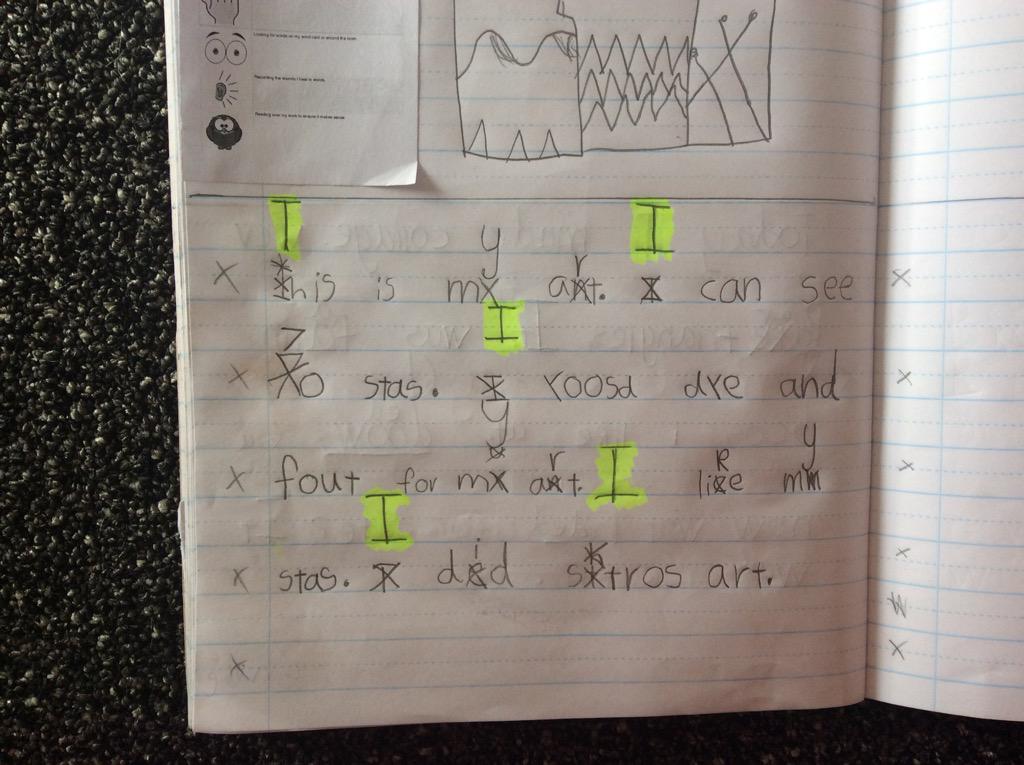 Looking for words on my word card or around the room.
Recording the sounds I hear in words.
Reading over my work to ensure it makes sense.
I y r I
This is my art. I can see
I
stas. I roosd dre and
y r R y
fout for my art. I like my
I i k
stas. I did sktros art.